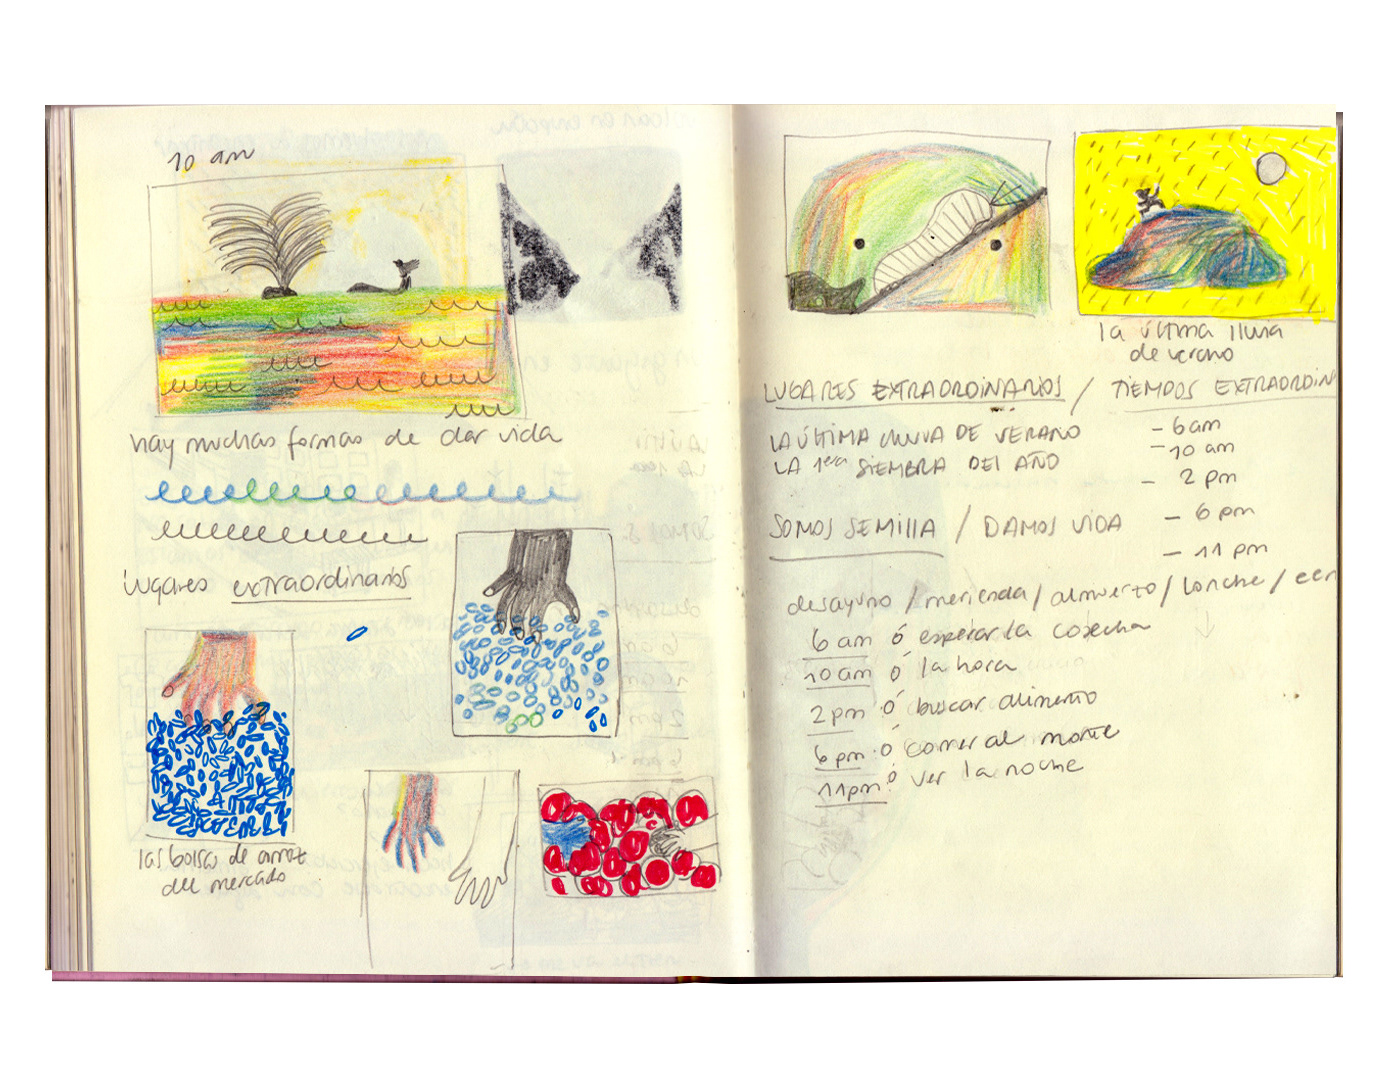 10 am
hay muchas formas de dar vida
lugares extraordinarios
las bolsa de arroz
del mercado
la última lluvia
de verano
LUGARES EXTRAORDINARIOS / TIEMPOS EXTRAORDIN
LA ÚLTIMA LLUVIA DE VERANO
LA 1era SIEMBRA DEL AÑO
- 6 am
- 10 am
- 2 pm
SOMOS SEMILLA / DAMOS VIDA
- 6 pm
- 11 pm
desayuno / merienda / almuerzo / lonche / cen
6 am ó esperar la cosecha
10 am ó la hora
2 pm ó buscar alimento
6 pm ó comer al monte
11 pm ó ver la noche